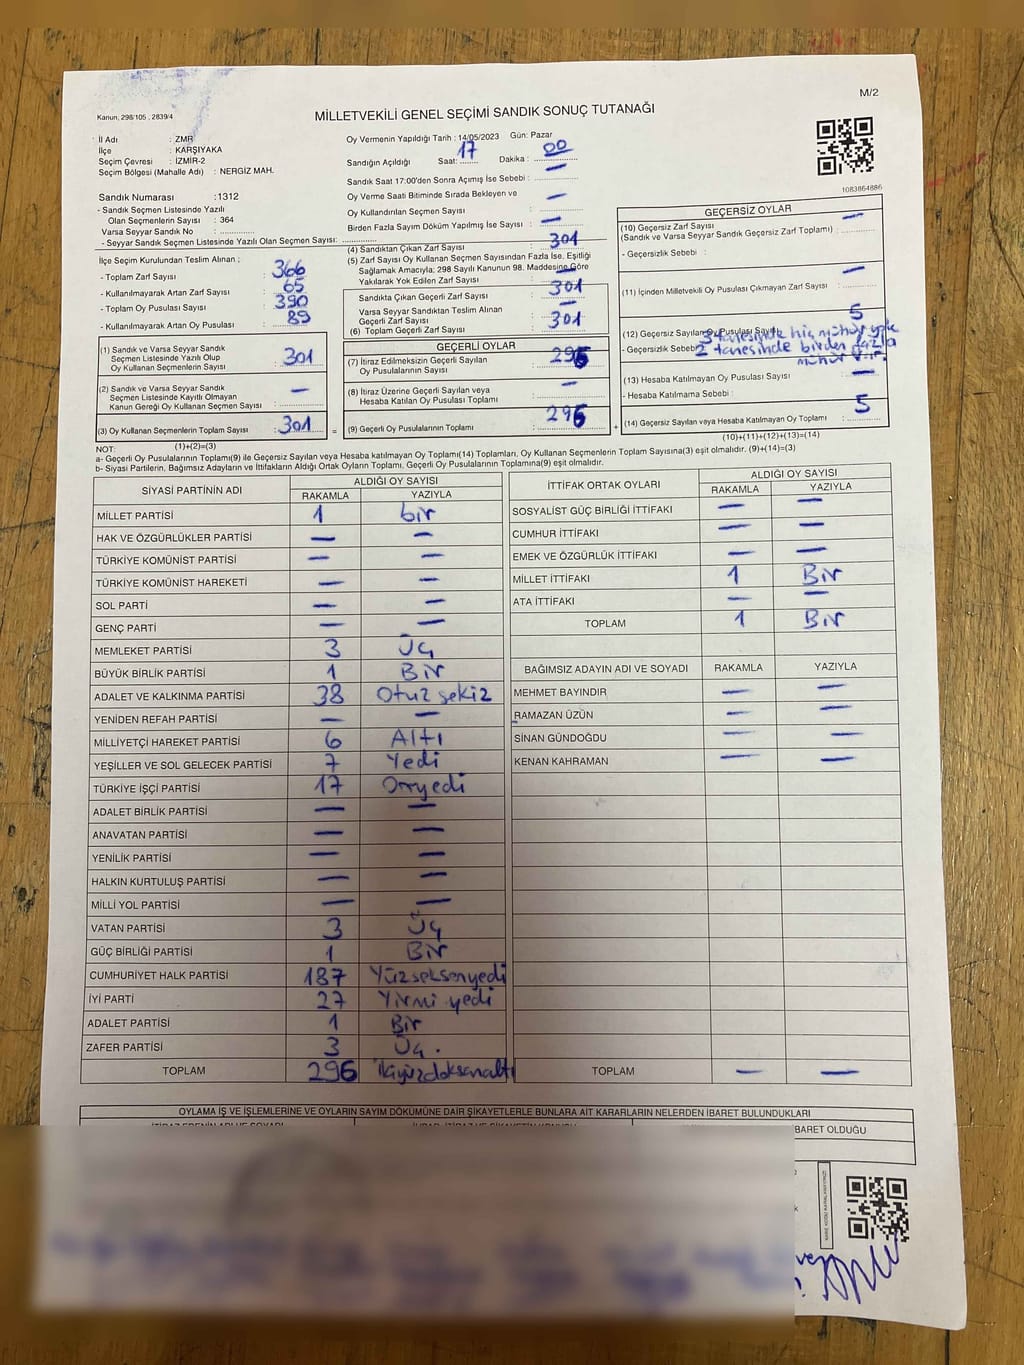 M/2
Kanun, 298/105 , 2839/4
MİLLETVEKİLİ GENEL SEÇİMİ SANDIK SONUÇ TUTANAĞI
İl Adı : ZMR
İlçe : KARŞIYAKA
Seçim Çevresi : İZMİR-2
Seçim Bölgesi (Mahalle Adı) : NERGİZ MAH.
Sandık Numarası :1312
- Sandık Seçmen Listesinde Yazılı
Olan Seçmenlerin Sayısı : 364
Varsa Seyyar Sandık No :
- Seyyar Sandık Seçmen Listesinde Yazılı Olan Seçmen Sayısı:
İlçe Seçim Kurulundan Teslim Alınan ;
- Toplam Zarf Sayısı : 366
- Kullanılmayarak Artan Zarf Sayısı : 65
- Toplam Oy Pusulası Sayısı : 390
- Kullanılmayarak Artan Oy Pusulası : 89
(1) Sandık ve Varsa Seyyar Sandık
Seçmen Listesinde Yazılı Olup
Oy Kullanan Seçmenlerin Sayısı : 301
(2) Sandık ve Varsa Seyyar Sandık
Seçmen Listesinde Kayıtlı Olmayan
Kanun Gereği Oy Kullanan Seçmen Sayısı : —
(3) Oy Kullanan Seçmenlerin Toplam Sayısı : 301
(1)+(2)=(3)
Oy Vermenin Yapıldığı Tarih : 14/05/2023 Gün: Pazar
Sandığın Açıldığı Saat: 17 Dakika : 00
Sandık Saat 17:00'den Sonra Açımış İse Sebebi : —
Oy Verme Saati Bitiminde Sırada Bekleyen ve
Oy Kullandırılan Seçmen Sayısı : —
Birden Fazla Sayım Döküm Yapılmış İse Sayısı : —
(4) Sandıktan Çıkan Zarf Sayısı : 301
(5) Zarf Sayısı Oy Kullanan Seçmen Sayısından Fazla İse, Eşitliği
Sağlamak Amacıyla; 298 Sayılı Kanunun 98. Maddesine Göre
Yakılarak Yok Edilen Zarf Sayısı : —
Sandıkta Çıkan Geçerli Zarf Sayısı : 301
Varsa Seyyar Sandıktan Teslim Alınan
Geçerli Zarf Sayısı : —
(6) Toplam Geçerli Zarf Sayısı : 301
GEÇERLİ OYLAR
(7) İtiraz Edilmeksizin Geçerli Sayılan
Oy Pusulalarının Sayısı : 296
(8) İtiraz Üzerine Geçerli Sayılan veya
Hesaba Katılan Oy Pusulası Toplamı : —
(9) Geçerli Oy Pusulalarının Toplamı : 296
1083864886
GEÇERSİZ OYLAR
(10) Geçersiz Zarf Sayısı
(Sandık ve Varsa Seyyar Sandık Geçersiz Zarf Toplamı) : —
- Geçersizlik Sebebi :
(11) İçinden Milletvekili Oy Pusulası Çıkmayan Zarf Sayısı : —
(12) Geçersiz Sayılan Oy Pusulası Sayısı : 5
3 tanesinde hiç mühür yok
- Geçersizlik Sebebi 2 tanesinde birden fazla
mühür var.
(13) Hesaba Katılmayan Oy Pusulası Sayısı : —
- Hesaba Katılmama Sebebi :
(14) Geçersiz Sayılan veya Hesaba Katılmayan Oy Toplamı : 5
(10)+(11)+(12)+(13)=(14)
NOT:
a- Geçerli Oy Pusulaları Toplamı(9) ile Geçersiz Sayılan veya Hesaba katılmayan Oy Toplamı(14) Toplamları, Oy Kullanan Seçmenlerin Toplam Sayısına(3) eşit olmalıdır. (9)+(14)=(3)
b- Siyasi Partilerin, Bağımsız Adayların ve İttifakların Aldığı Ortak Oyların Toplamı, Geçerli Oy Pusulalarının Toplamına(9) eşit olmalıdır.
SİYASİ PARTİNİN ADI ALDIĞI OY SAYISI
RAKAMLA YAZIYLA
MİLLET PARTİSİ 1 bir
HAK VE ÖZGÜRLÜKLER PARTİSİ — —
TÜRKİYE KOMÜNİST PARTİSİ — —
TÜRKİYE KOMÜNİST HAREKETİ — —
SOL PARTİ — —
GENÇ PARTİ — —
MEMLEKET PARTİSİ 3 Üç
BÜYÜK BİRLİK PARTİSİ 1 Bir
ADALET VE KALKINMA PARTİSİ 38 Otuz sekiz
YENİDEN REFAH PARTİSİ — —
MİLLİYETÇİ HAREKET PARTİSİ 6 Altı
YEŞİLLER VE SOL GELECEK PARTİSİ 7 Yedi
TÜRKİYE İŞÇİ PARTİSİ 17 Onyedi
ADALET BİRLİK PARTİSİ — —
ANAVATAN PARTİSİ — —
YENİLİK PARTİSİ — —
HALKIN KURTULUŞ PARTİSİ — —
MİLLİ YOL PARTİSİ — —
VATAN PARTİSİ 3 Üç
GÜÇ BİRLİĞİ PARTİSİ 1 Bir
CUMHURİYET HALK PARTİSİ 187 Yüzseksenyedi
İYİ PARTİ 27 Yirmi yedi
ADALET PARTİSİ 1 Bir
ZAFER PARTİSİ 3 Üç.
TOPLAM 296 ikiyüzdoksanaltı
İTTİFAK ORTAK OYLARI ALDIĞI OY SAYISI
RAKAMLA YAZIYLA
SOSYALİST GÜÇ BİRLİĞİ İTTİFAKI — —
CUMHUR İTTİFAKI — —
EMEK VE ÖZGÜRLÜK İTTİFAKI — —
MİLLET İTTİFAKI 1 Bir
ATA İTTİFAKI — —
TOPLAM 1 Bir
BAĞIMSIZ ADAYIN ADI VE SOYADI RAKAMLA YAZIYLA
MEHMET BAYINDIR — —
RAMAZAN ÜZÜN — —
SİNAN GÜNDOĞDU — —
KENAN KAHRAMAN — —
TOPLAM — —
OYLAMA İŞ VE İŞLEMLERİNE VE OYLARIN SAYIM DÖKÜMÜNE DAİR ŞİKAYETLERLE BUNLARA AİT KARARLARIN NELERDEN İBARET BULUNDUKLARI
BARET OLDUĞU